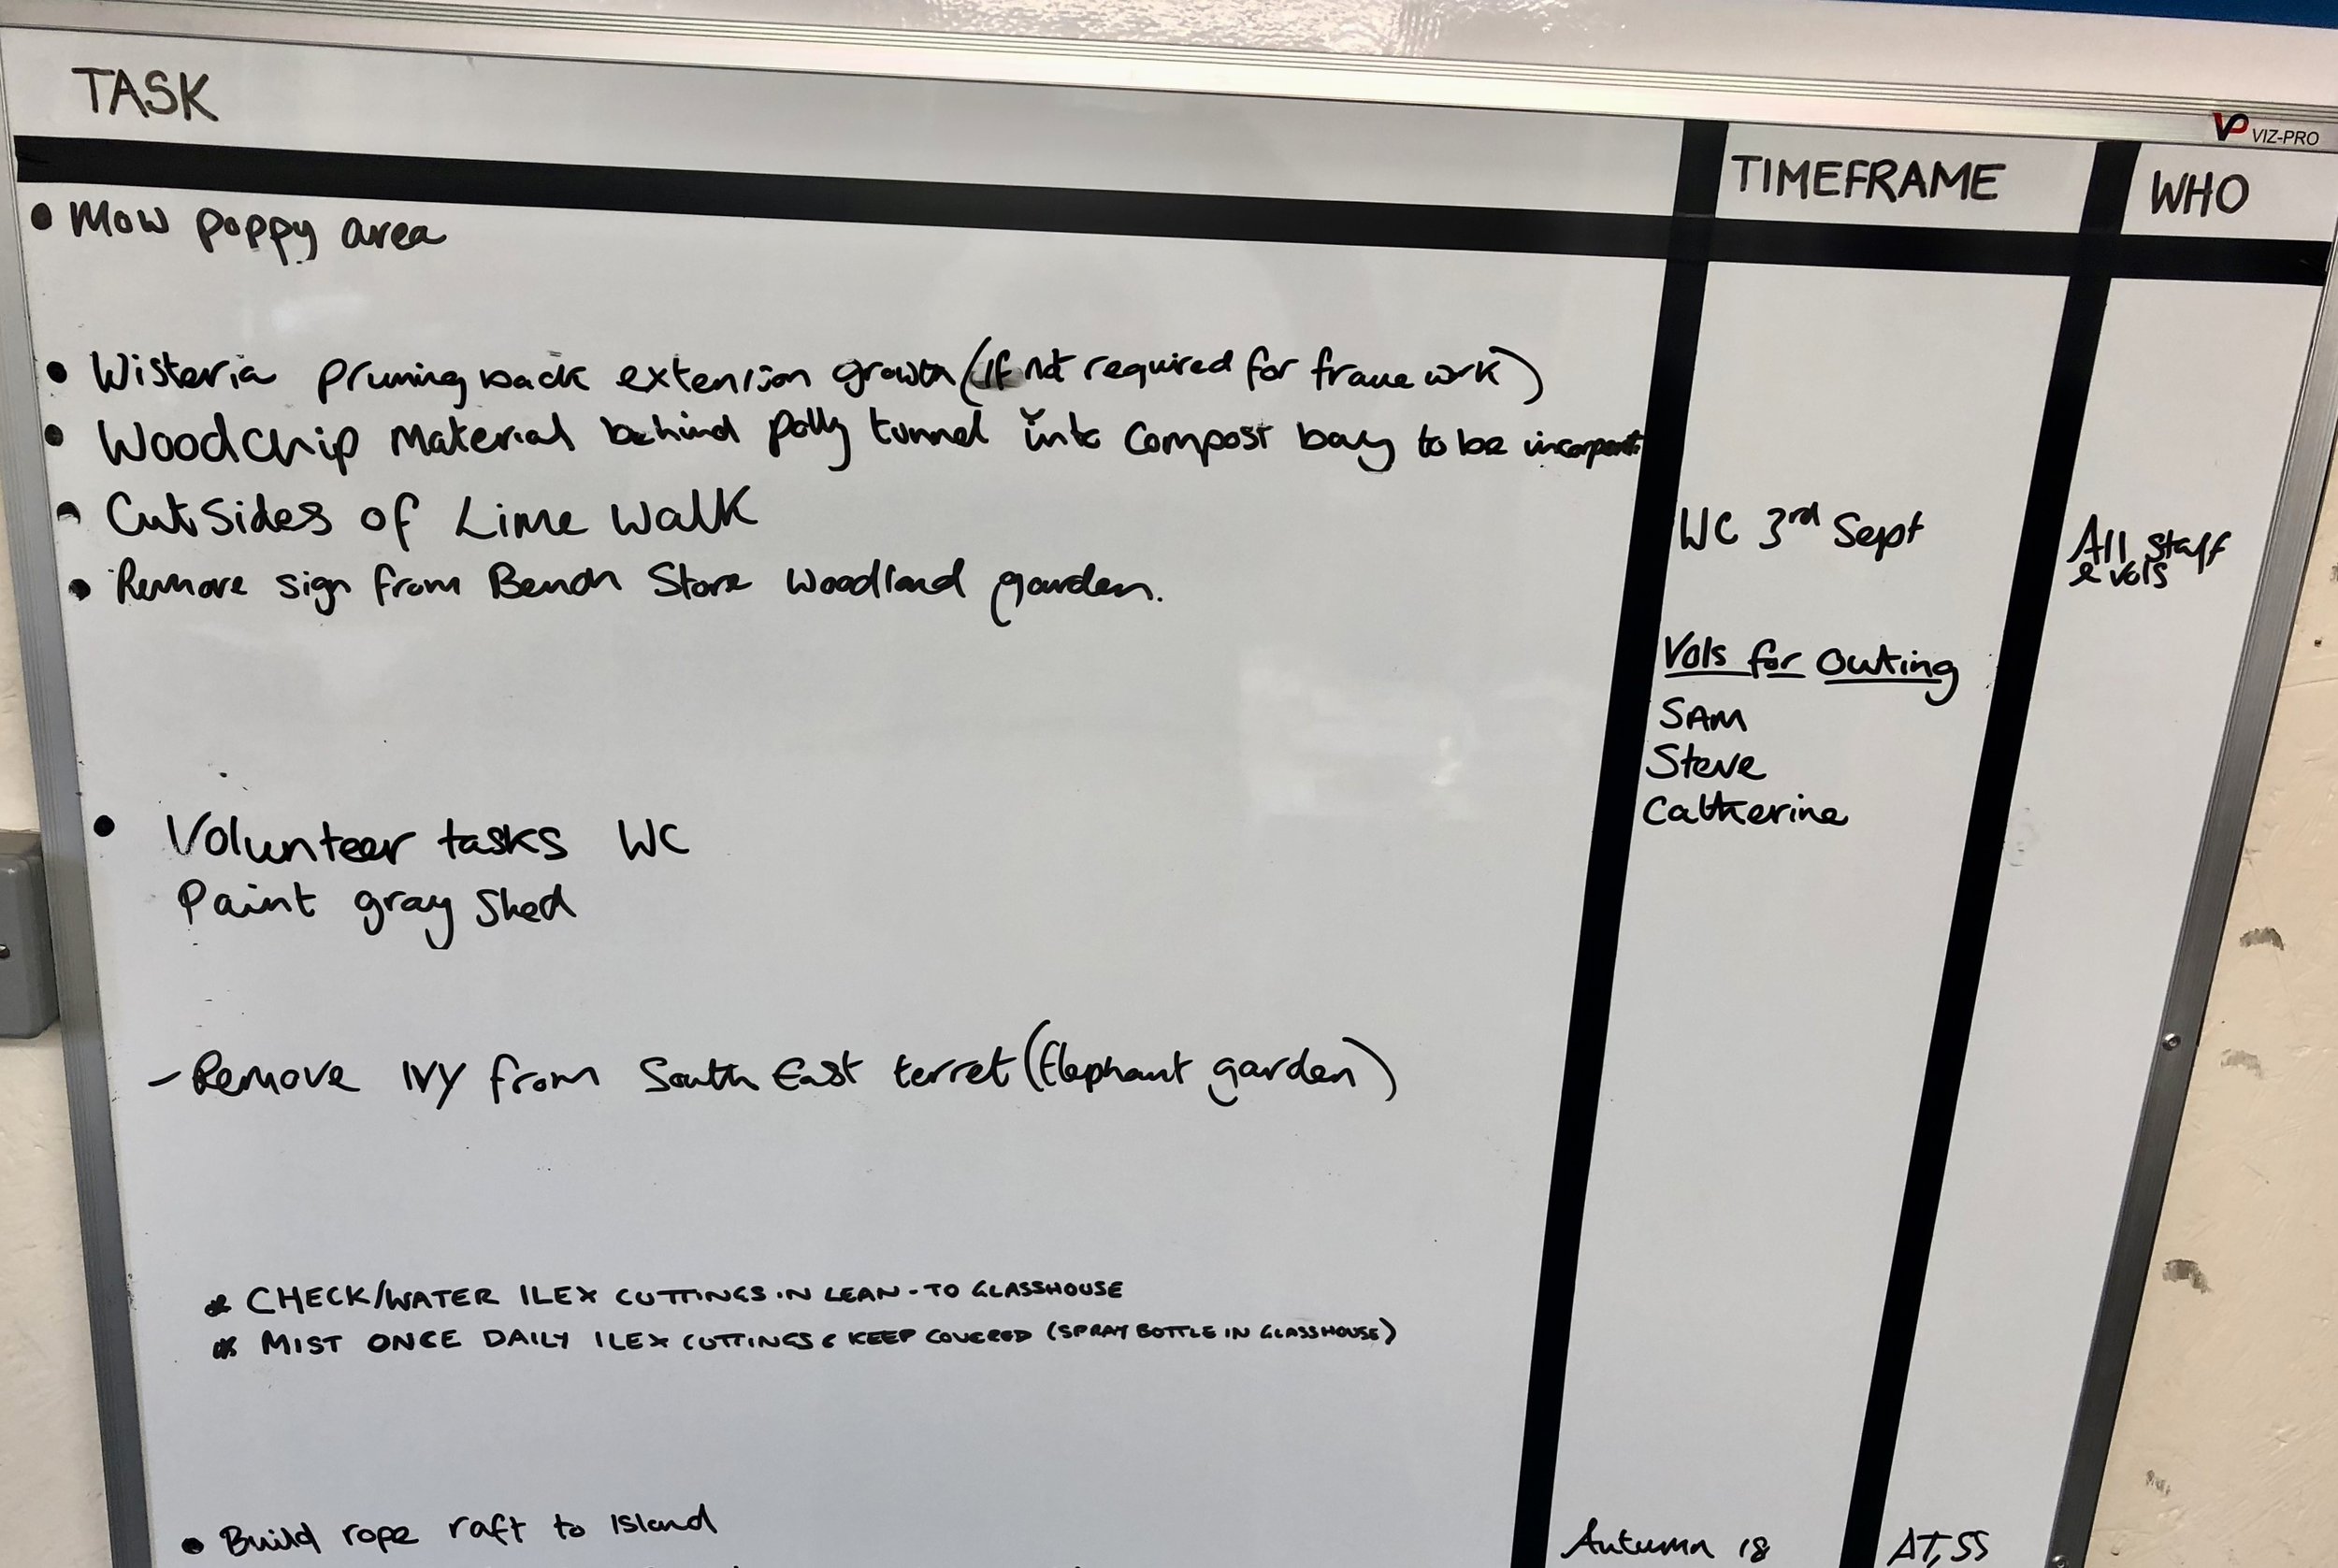 TASK
TIMEFRAME
WHO
VP VIZ-PRO
• Mow poppy area
• Wisteria pruning back extension growth (if not required for frame work)
• Woodchip material behind polly tunnel into compost bay to be
• Cut sides of Lime Walk
WC 3rd Sept
All staff
& vols
• Remove sign from Bench Store Woodland garden.
Vols for Outing
SAM
Steve
Catherine
• Volunteer tasks WC
Paint gray Shed
- Remove IVY from South East terret (Elephant garden)
* CHECK/WATER ILEX CUTTINGS IN LEAN-TO GLASSHOUSE
* MIST ONCE DAILY ILEX CUTTINGS & KEEP COVERED (SPRAY BOTTLE IN GLASSHOUSE)
• Build rope raft to Island
Autumn 18
AT, SS